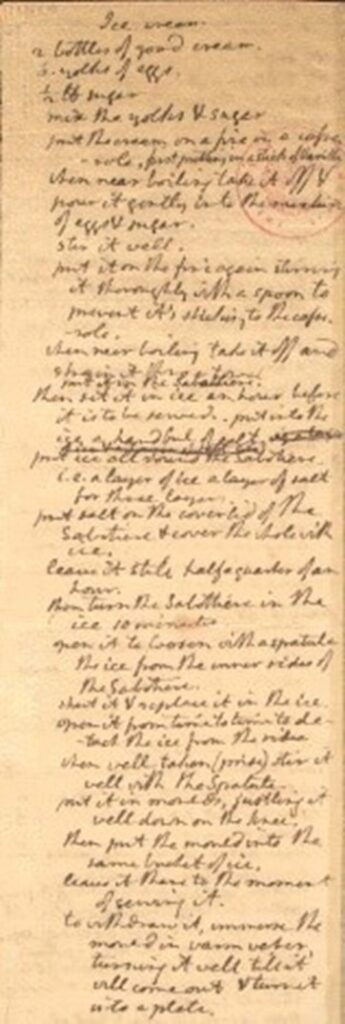 Ice cream.
2 bottles of good cream.
6. yolks of eggs.
½ lb sugar
mix the yolks & sugar
put the cream on a fire in a casse-
-role, first putting in a stick of Vanilla.
when near boiling take it off &
pour it gently into the mixture
of eggs & sugar.
stir it well.
put it on the fire again stirring
it thoroughly with a spoon to
prevent it's sticking to the casse-
-role.
when near boiling take it off and
strain it thro' a towel.
put it in the Sabottiere.
then set it in ice an hour before
it is to be served. put into the
ice a handful of salt
put ice all round the Sabottiere
i.e. a layer of ice a layer of salt
for three layers.
put salt on the coverlid of the
Sabotiere & cover the whole with
ice.
leave it still half a quarter of an
hour.
then turn the Sabottiere in the
ice 10 minutes
open it to loosen with a spatula
the ice from the inner sides of
the Sabotiere.
shut it & replace it in the ice.
open it from time to time to de-
-tach the ice from the sides
when well taken (prise) stir it
well with the Spatula.
put it in moulds, justling it
well down on the knee.
then put the mould into the
same bucket of ice.
leave it there to the moment
of serving it.
to withdraw it, immerse the
mould in warm water,
turning it well till it
will come out & turn it
into a plate.